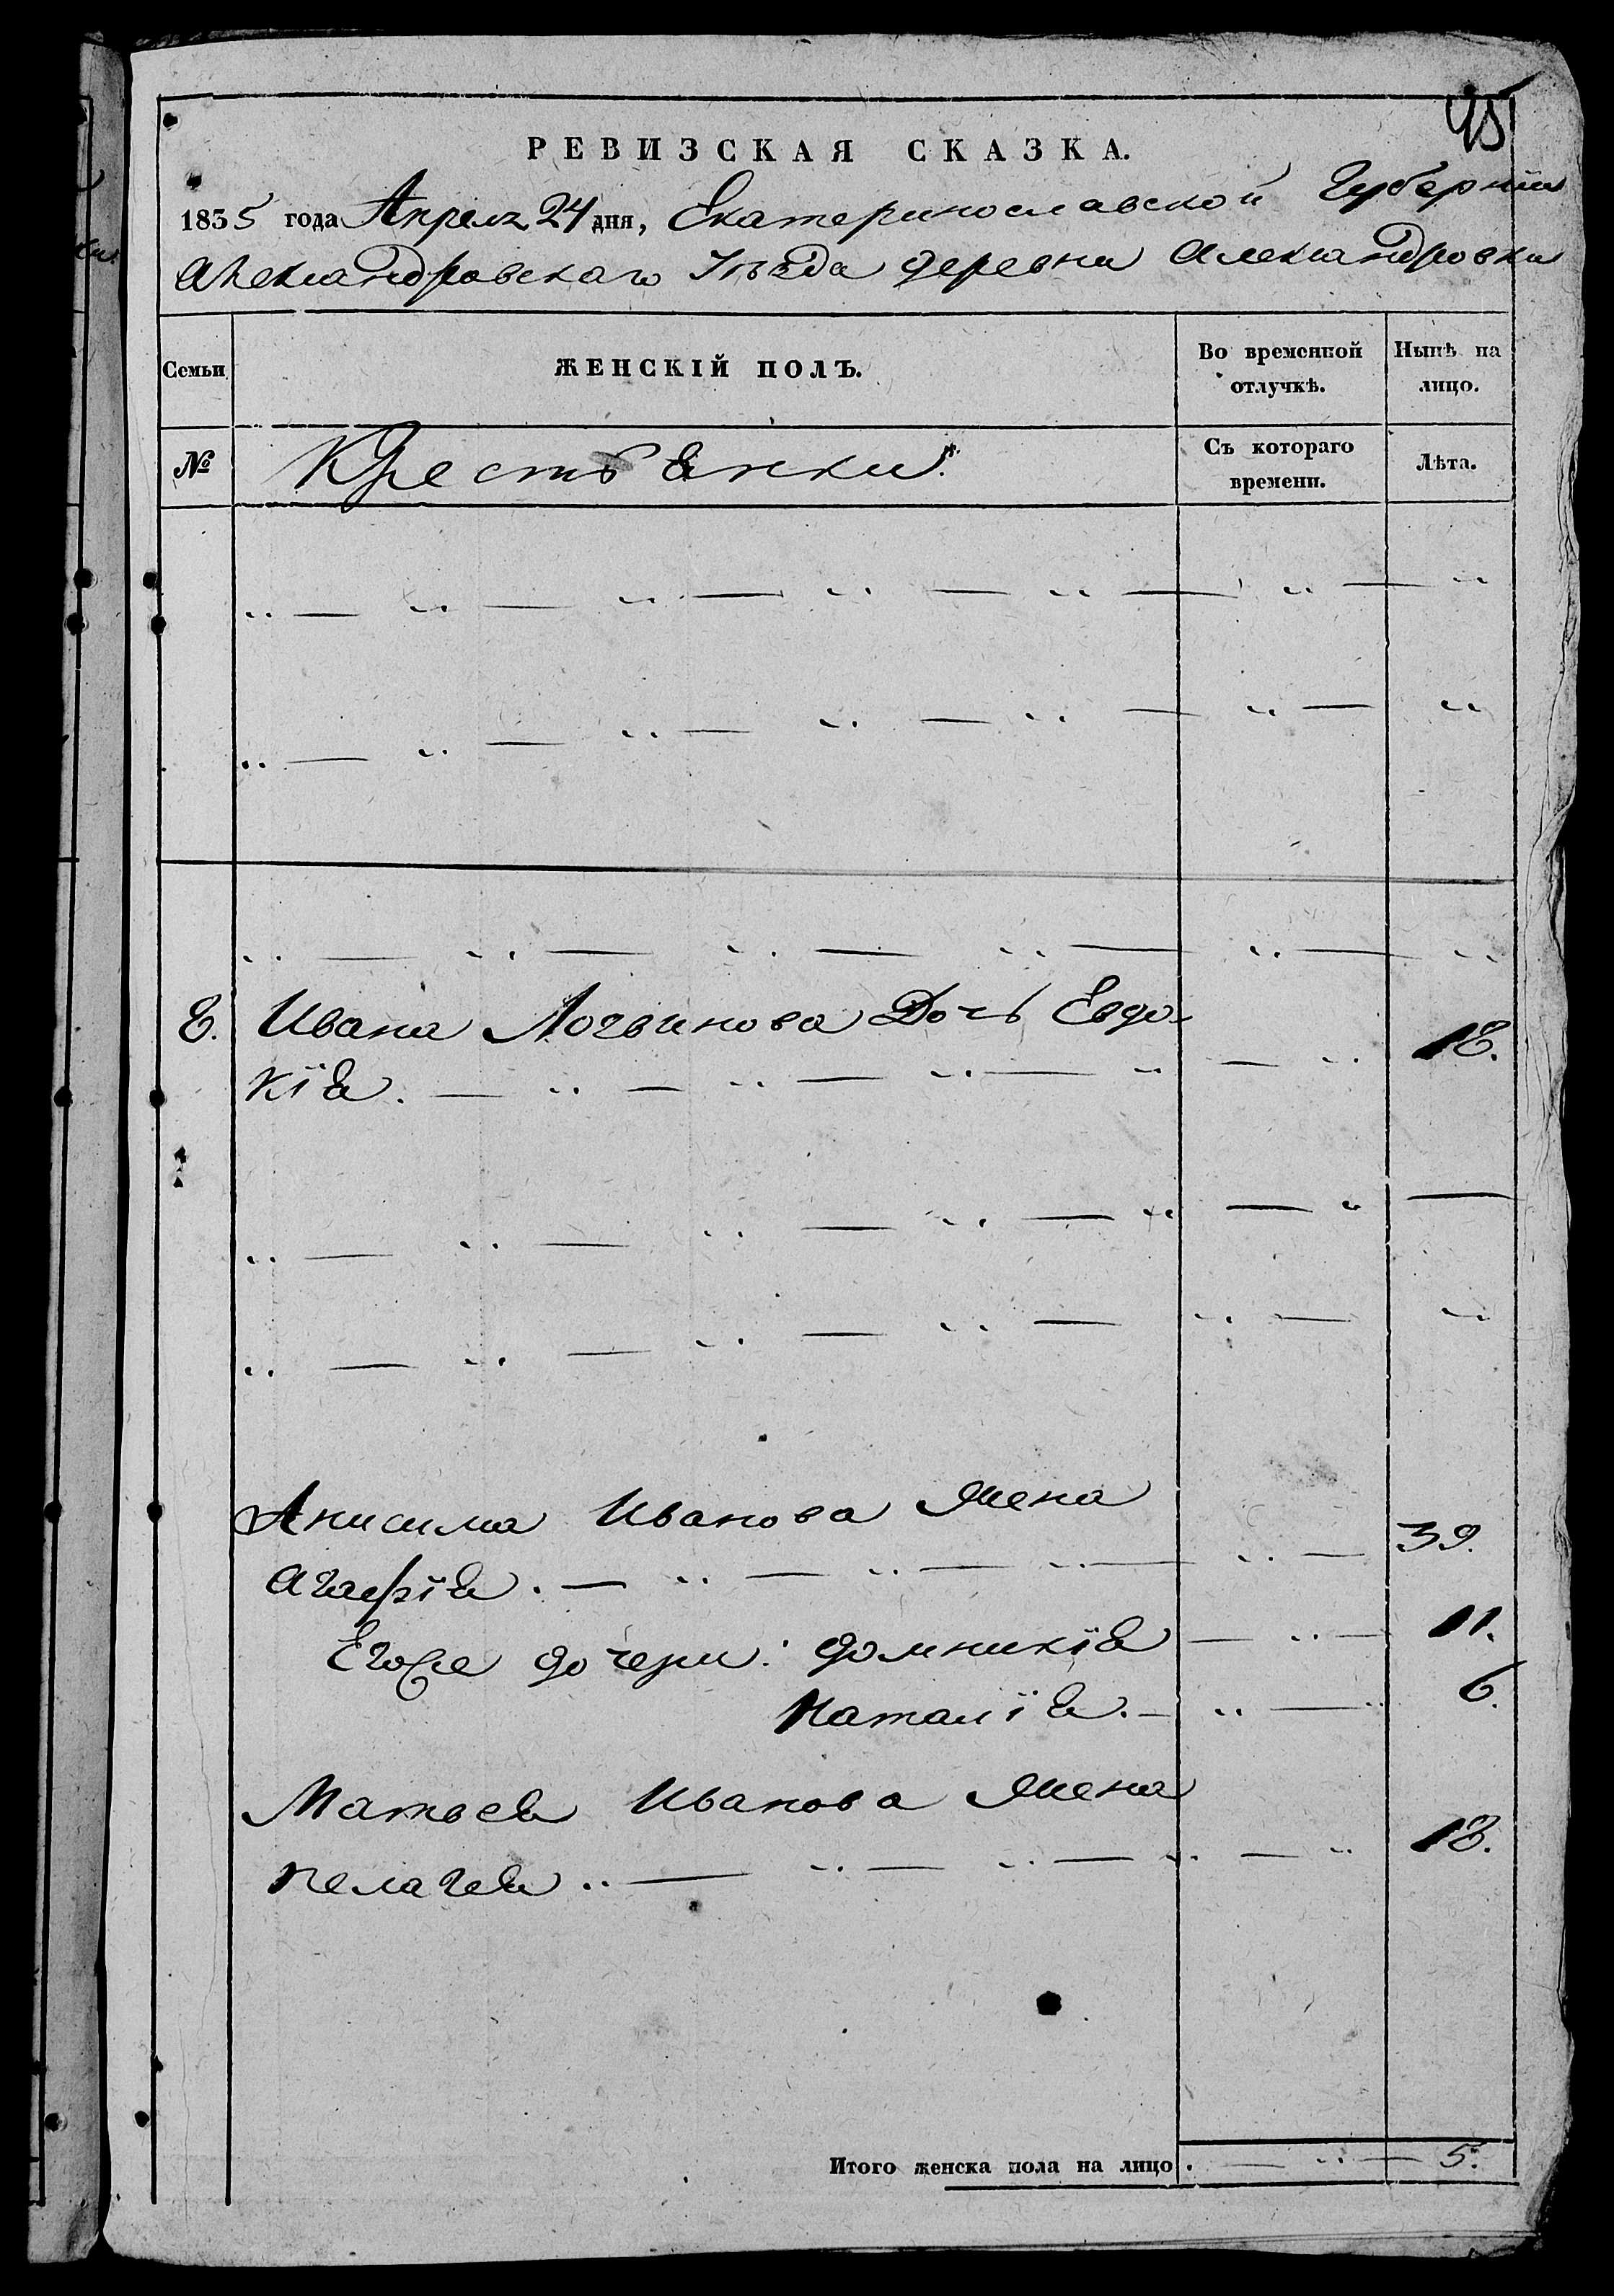 95
РЕВИЗСКАЯ СКАЗКА.
1835 года Апреля 24 дня, Екатеринославской Губерніи
Александровскаго Уѣзда деревни Александровки
Семьи ЖЕНСКІЙ ПОЛЪ. Во временной отлучкѣ. Нынѣ на лицо.
№ Крестьянки. Съ котораго времени. Лѣта.
8. Ивана Логвинова Дочь Евдо-
кія. 18.
Анисима Иванова Жена
Агафія. 39.
Егоже дочери: Домникія 11.
Наталія. 6.
Матвея Иванова Жена
Пелагея 18.
Итого женска пола на лицо. 5.